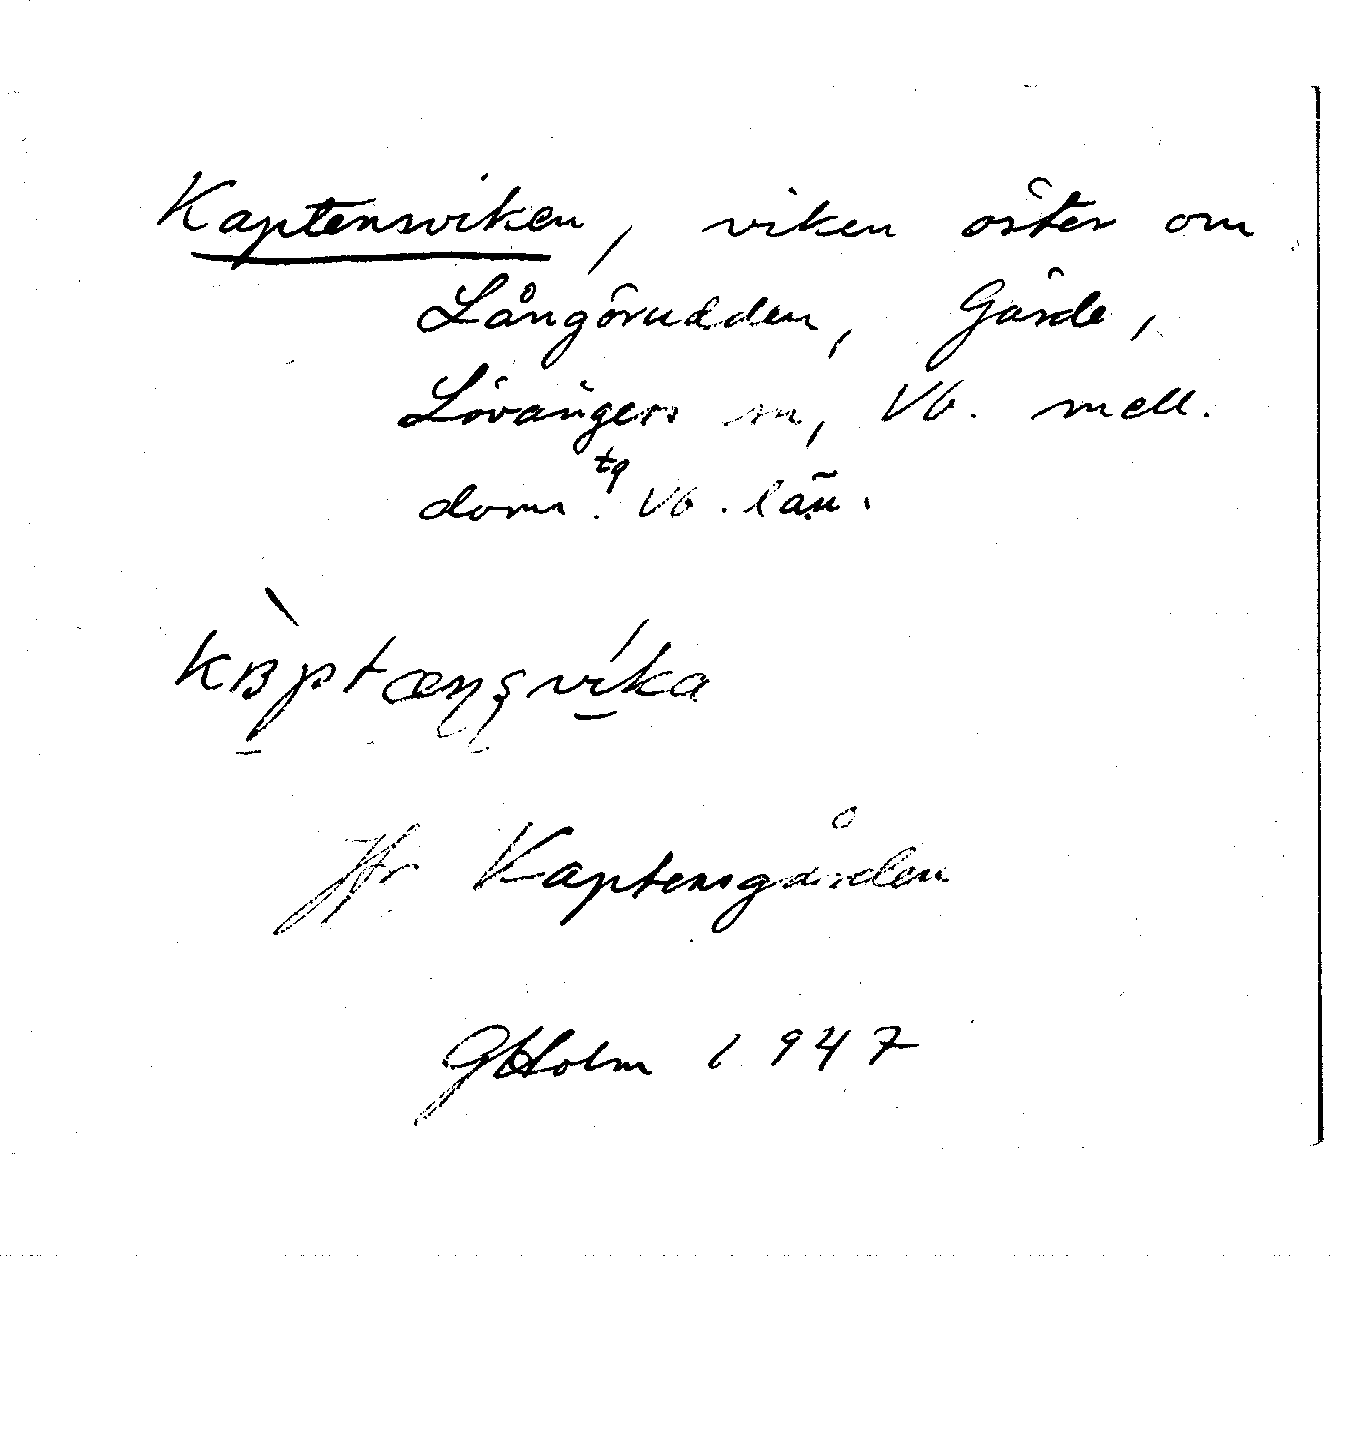 Kaptensviken, viken öster om
Långörudden, Gärde,
Lövångers sn, Vb. mell.
doms tg Vb. län.
Jfr Kaptensgården
GHolm 1947